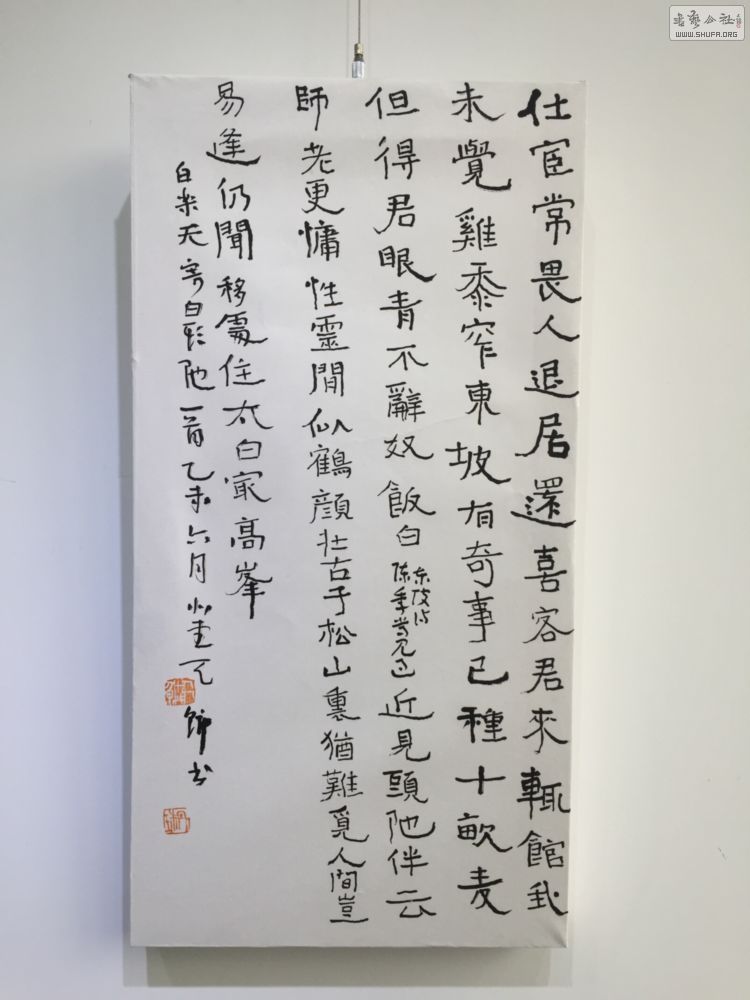 仕宦常畏人退居還喜客君來輒館我
未覺雞黍窄東坡有奇事已種十畝麦
但得君眼青不辭奴飯白
东坡诗
陈季常见过
近見頭陁伴云
師老更慵性靈間似鶴顔壮古于松山裏猶難覓人間豈
易逢仍聞移處住太白冣高峯
白楽天寄白頭陁一首乙未六月
书
书艺公社
WWW.SHUFA.ORG